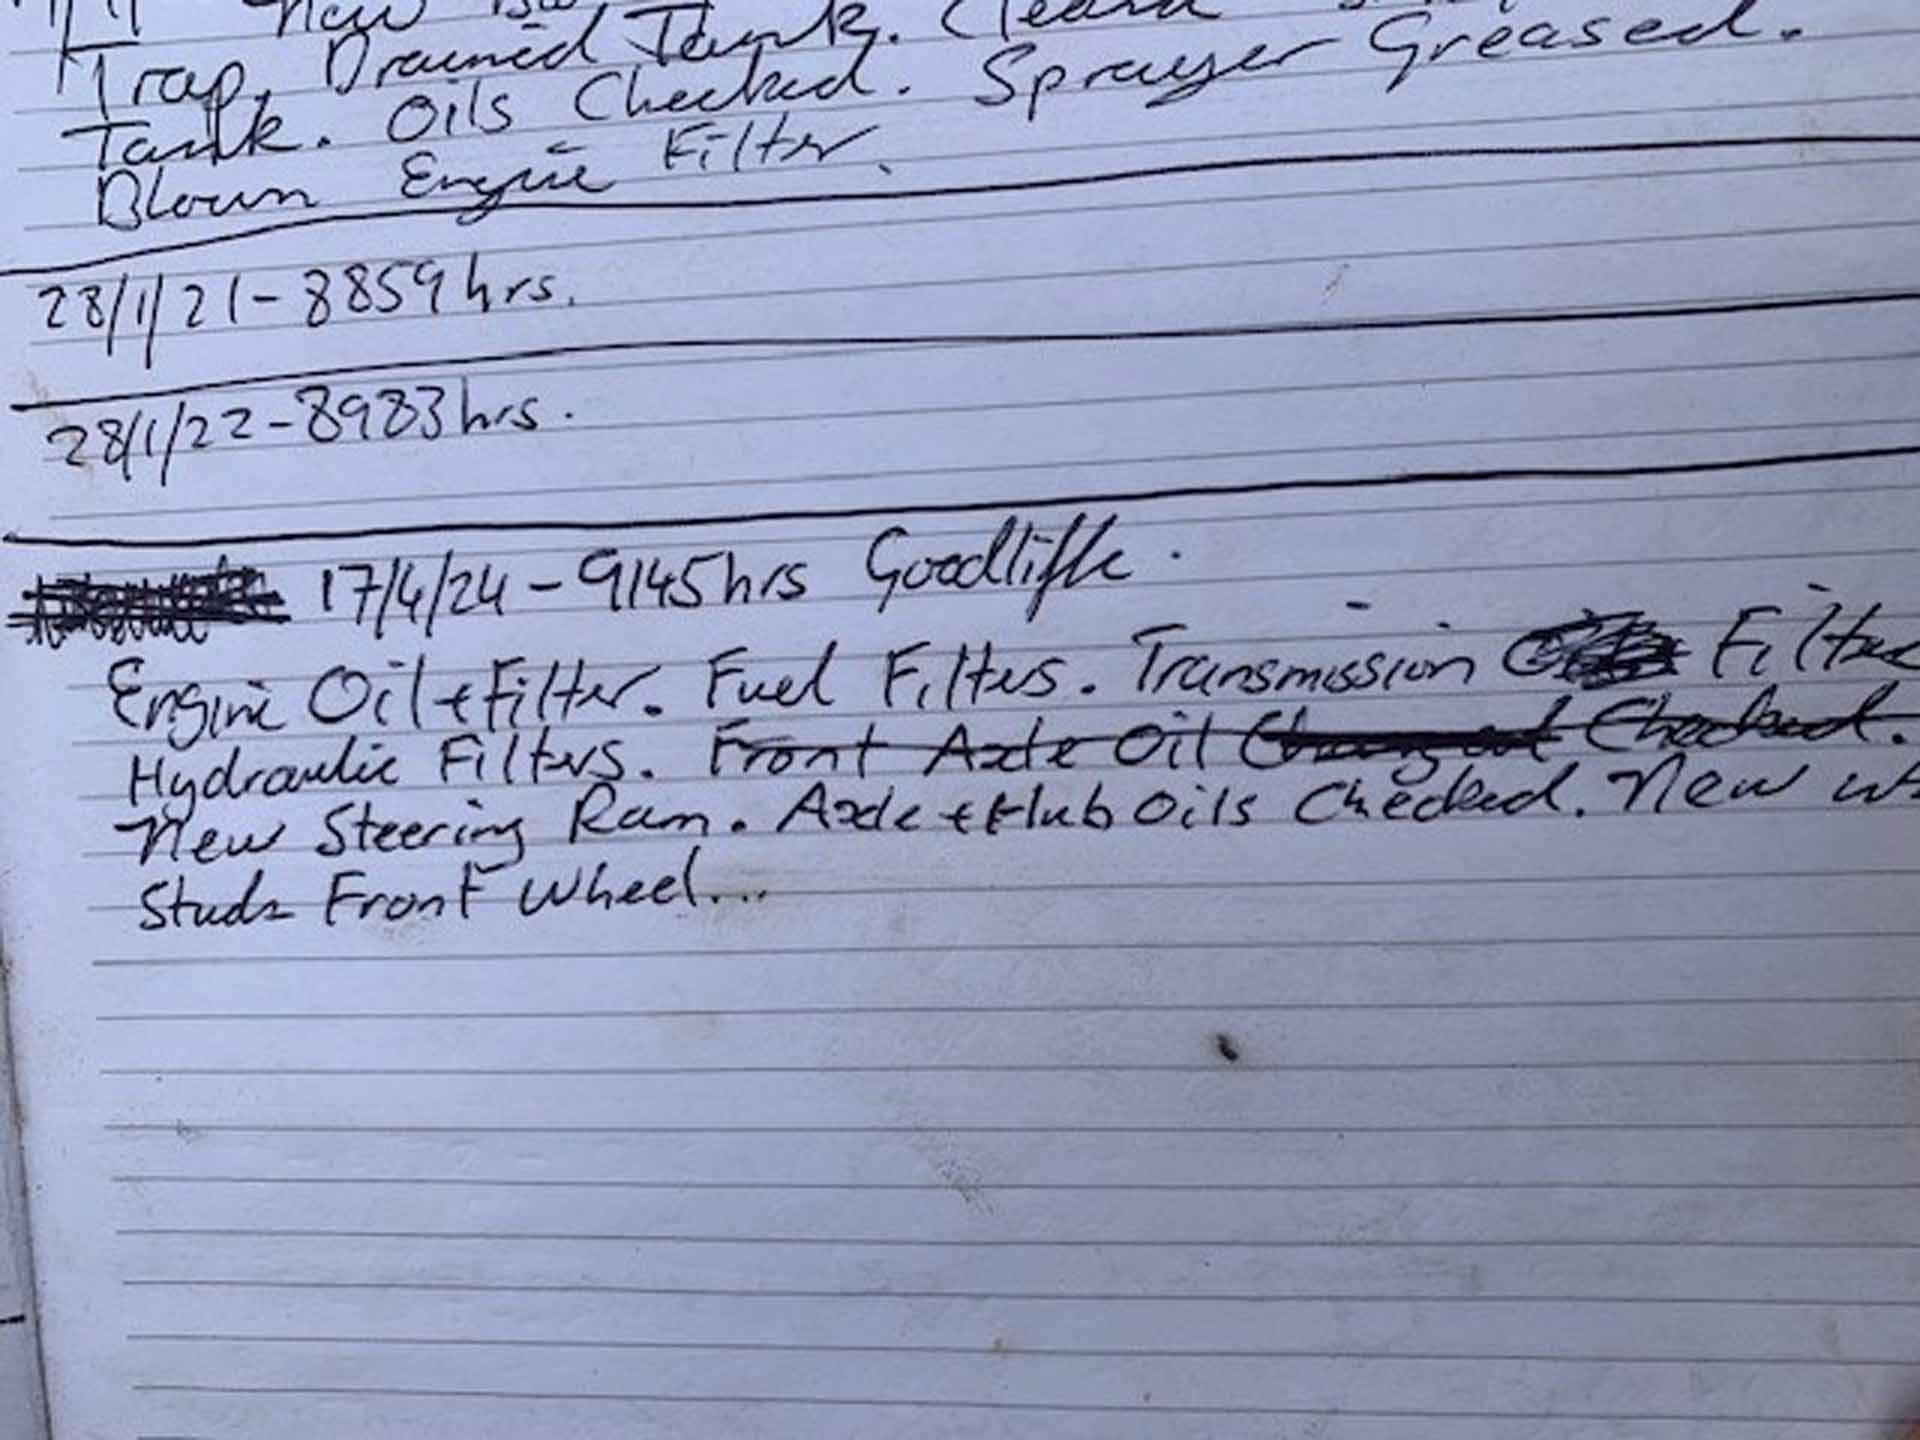 New
Trap. Drained Tank. Cleand
Tank. Oils Checked. Sprayer Greased.
Blown Engine Filter.
28/1/21 - 8859hrs.
28/1/22 - 8983hrs.
17/4/24 - 9145hrs Goodliffe.
Engine Oil + Filter. Fuel Filters. Transmission Filter
Hydraulic Filters. Front Axle Oil Changed Checked.
New Steering Ram. Axle + Hub Oils Checked. New
Studs Front Wheel...